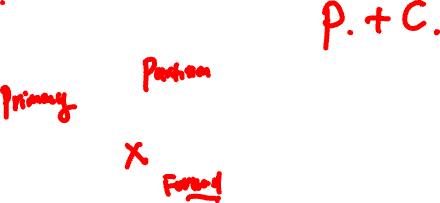 P. + C.
Position
Primary
X
Forward